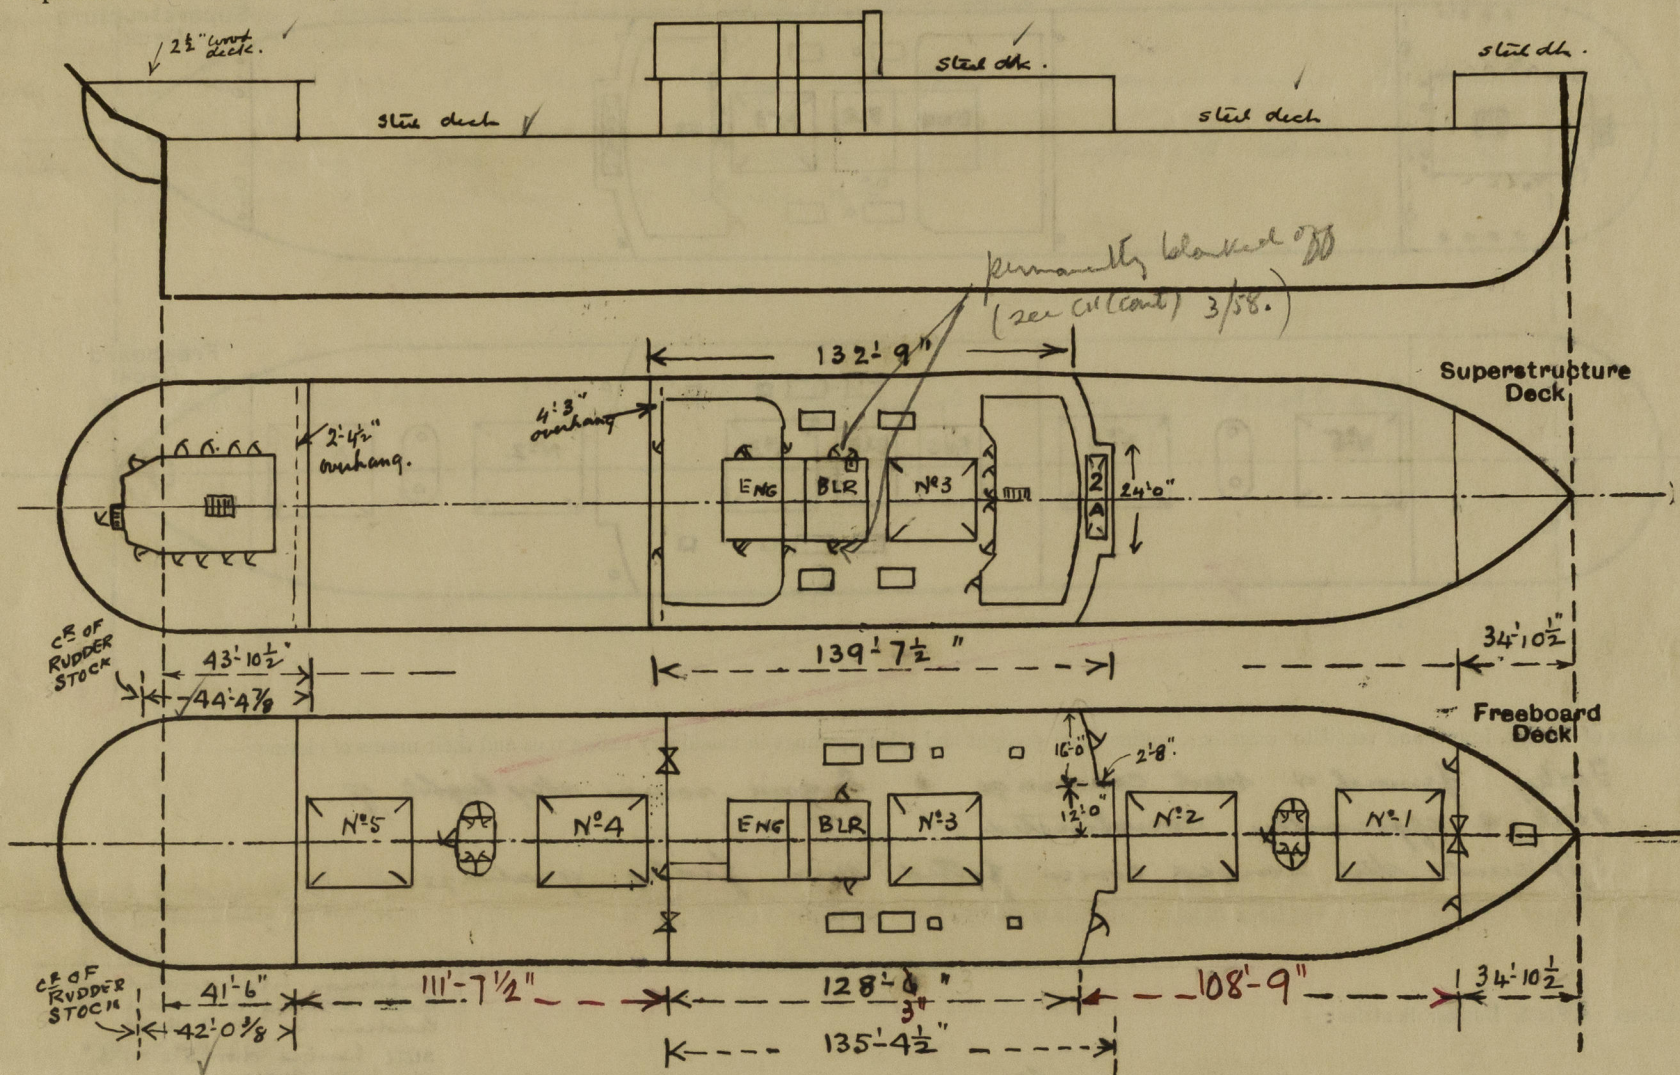 2½" wood
deck.
steel deck
steel dk.
steel deck
steel dk.
permanently blanked off
(see CII (cont) 3/58.)
132'-9"
Superstructure
Deck
4'-3"
overhang
2'-4½"
overhang.
ENG
BLR
Nº3
2
A
24'-0"
CR OF
RUDDER
STOCK
43'-10½"
44'-4⅞
139'-7½"
34'-10½"
Freeboard
Deck
16'-0"
2'-8".
12'-0"
Nº5
Nº4
ENG
BLR
Nº3
Nº2
Nº1
CR OF
RUDDER
STOCK
41'-6"
111'-7½"
128'-6"
3"
108'-9"
34'-10½
42'-0⅜
135'-4½"